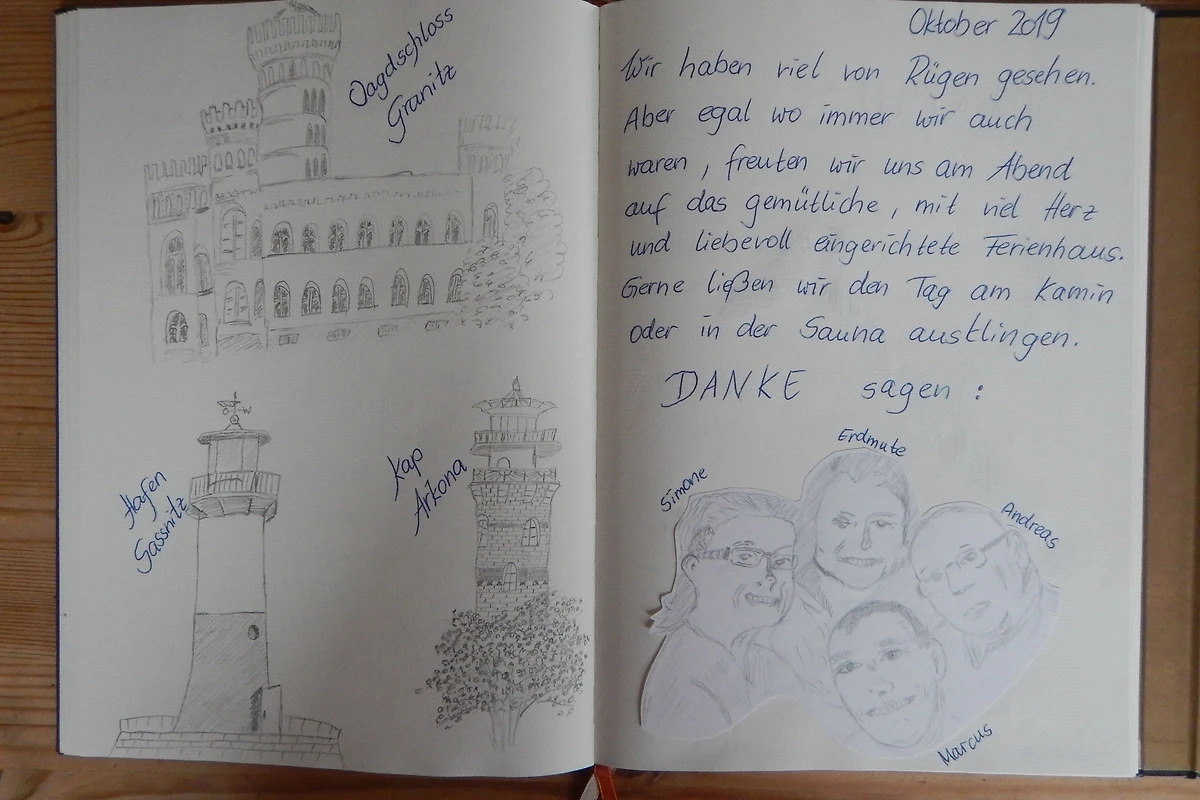 Jagdschloss
Granitz
Hafen
Sassnitz
Kap
Arkona
Oktober 2019
Wir haben viel von Rügen gesehen.
Aber egal wo immer wir auch
waren, freuten wir uns am Abend
auf das gemütliche, mit viel Herz
und liebevoll eingerichtete Ferienhaus.
Gerne ließen wir den Tag am Kamin
oder in der Sauna ausklingen.
DANKE sagen :
Erdmute
Simone
Andreas
Marcus